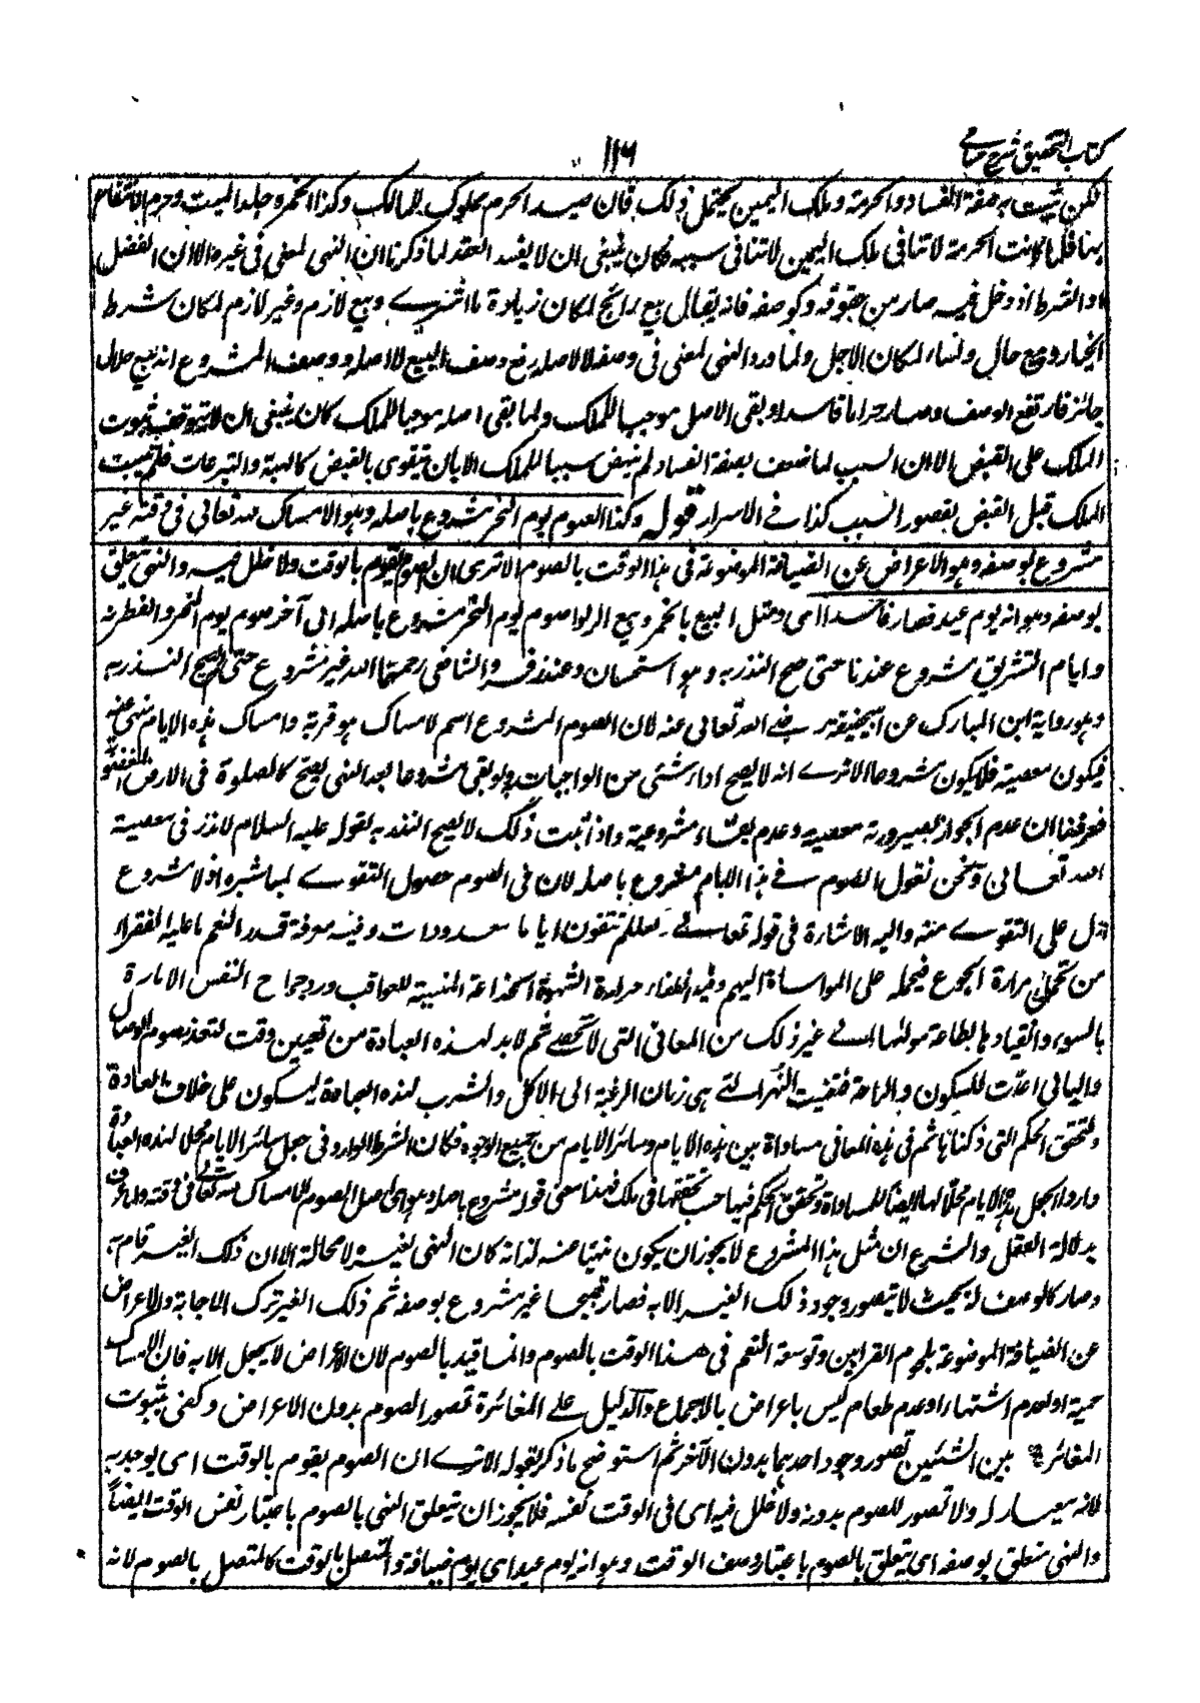 كتاب التحقيق شرح حسامي
١١٦
لكن ثبت به صفة الفساد والحرمة وملك اليمين يحتمل ذلك فان صيد الحرم مملوك للمالك وكذا الخمر وجلد الميت وحرم الانتفاع
بها فلما كانت الحرمة لا تنافي ملك اليمين لا تنافي سببه فكان ينبغي ان لا يفسد العقد لما ذكرنا ان النهي لمعنى في غيره الا ان الفضل
او الشرط اذ دخل فيه صار من حقوقه وكوصفه فانه يقال بيع رابح لمكان زيادة ما اشترى وبيع لازم وغير لازم لمكان شرط
الخيار وبيع حال ونساء لمكان الاجل ولما ورد النهي لمعنى في وصفه لا لاصله رفع وصف البيع لا اصله ووصف المشروع انه بيع حلال
جائز فارتفع الوصف وصار حراما فاسدا وبقي الاصل موجبا للملك ولما بقي اصله موجبا للملك كان ينبغي ان لا يتوقف ثبوت
الملك على القبض الا ان السبب لما ضعف بصفة الفساد لم ينهض سببا للملك الا بان يتقوى بالقبض كالهبة والتبرعات فلم يثبت
الملك قبل القبض بقصور السبب كذا في الاسرار قوله وكذا الصوم يوم النحر مشروع باصله وهو الامساك لله تعالى في وقته غير
مشروع بوصفه وهو الاعراض عن الضيافة الموضوعة في هذا الوقت بالصوم الا ترى ان الصوم يقوم بالوقت ولا خلل فيه والنهي يتعلق
بوصفه وهو انه يوم عيد فصار فاسدا اى ومثل البيع بالخمر وبيع الربوا صوم يوم النحر مشروع باصله الى آخر صوم يوم النحر والفطر
وايام التشريق مشروع عندنا حتى صح النذر به وهو استحسان وعند زفر والشافعي رحمهما الله غير مشروع حتى لم يصح النذر به
وهو رواية ابن المبارك عن ابي حنيفة رضي الله تعالى عنه لان الصوم المشروع اسم لامساك هو قربة وامساك هذه الايام منهي عنه
فيكون معصية فلا يكون مشروعا الا ترى انه لا يصح اداء شئ من الواجبات ولو بقي مشروعا بعد النهي لصح كالصلوة في الارض المغصوبة
فعرفنا ان عدم الجواز لصيرورته معصية وعدم بقاء مشروعية واذا ثبت ذلك لا يصح النذر به لقوله عليه السلام لا نذر في معصية
الله تعالى ونحن نقول الصوم في هذا الايام مشروع باصله لان في الصوم حصول التقوى لمباشره اذ لا مشروع
ادل على التقوى منه واليه الاشارة في قوله تعالى لعلكم تتقون اياما معدودات وفيه معرفة قدر النعم ما عليه الفقراء
من تحمل مرارة الجوع فيحمله على المواساة اليهم وفيه اطفاء حرارة الشهوة الخداعة المنسية للعواقب ورد جماح النفس الامارة
بالسوء وانقيادها لطاعة مولىها الى غير ذلك من المعاني التي لا تحصى ثم لا بد لهذه العبادة من تعيين وقت لتعذر صوم الوصال
والليالي اعدت للسكون والراحة فتعينت النهر التي هي زمان الرغبة الى الاكل والشرب لهذه العبادة ليكون على خلاف العادة
ولتحقق الحكم التي ذكرناها ثم في هذه المعاني مساواة بين هذه الايام وسائر الايام من جميع الوجوه فكان الشرط الوارد في جعل سائر الايام محلا لهذه العبادة
واردا لجعل هذه الايام محلا لها ايضا للمساواة وتحقق الحكم فيها حسب تحققها في تلك فهذا معنى قوله مشروع باصله وهو اى اصل الصوم الامساك لله تعالى في وقته ولما عرف
بدلالة العقل والشرع ان مثل هذا المشروع لا يجوز ان يكون منهيا عنه لذاته كان النهي لغيره لا محالة الا ان ذلك الغير قام به
وصار كالوصف له بحيث لا يتصور وجود ذلك الغير الا به فصار قبيحا غير مشروع بوصفه ثم ذلك الغير ترك الاجابة والاعراض
عن الضيافة الموضوعة بلحوم القرابين وتوسعة النعم في هذا الوقت بالصوم وانما قيد بالصوم لان الاعراض لا يحصل الا به فان الامساك
حمية او لعدم اشتهاء او عدم طعام ليس باعراض بالاجماع والدليل على المغائرة تصور الصوم بدون الاعراض وكفى بثبوت
المغائرة بين الشيئين تصور وجود احدهما بدون الآخر ثم استوضح ما ذكر بقوله الا ترى ان الصوم يقوم بالوقت اى يوجد به
لانه معيار له ولا تصور للصوم بدونه ولا خلل فيه اى في الوقت نفسه فلا يجوز ان يتعلق النهي بالصوم باعتبار نفس الوقت ايضا
والنهي متعلق بوصفه اى يتعلق بالصوم باعتبار وصف الوقت وهو انه يوم عيد اى يوم ضيافة والمتصل بالوقت كالمتصل بالصوم لانه